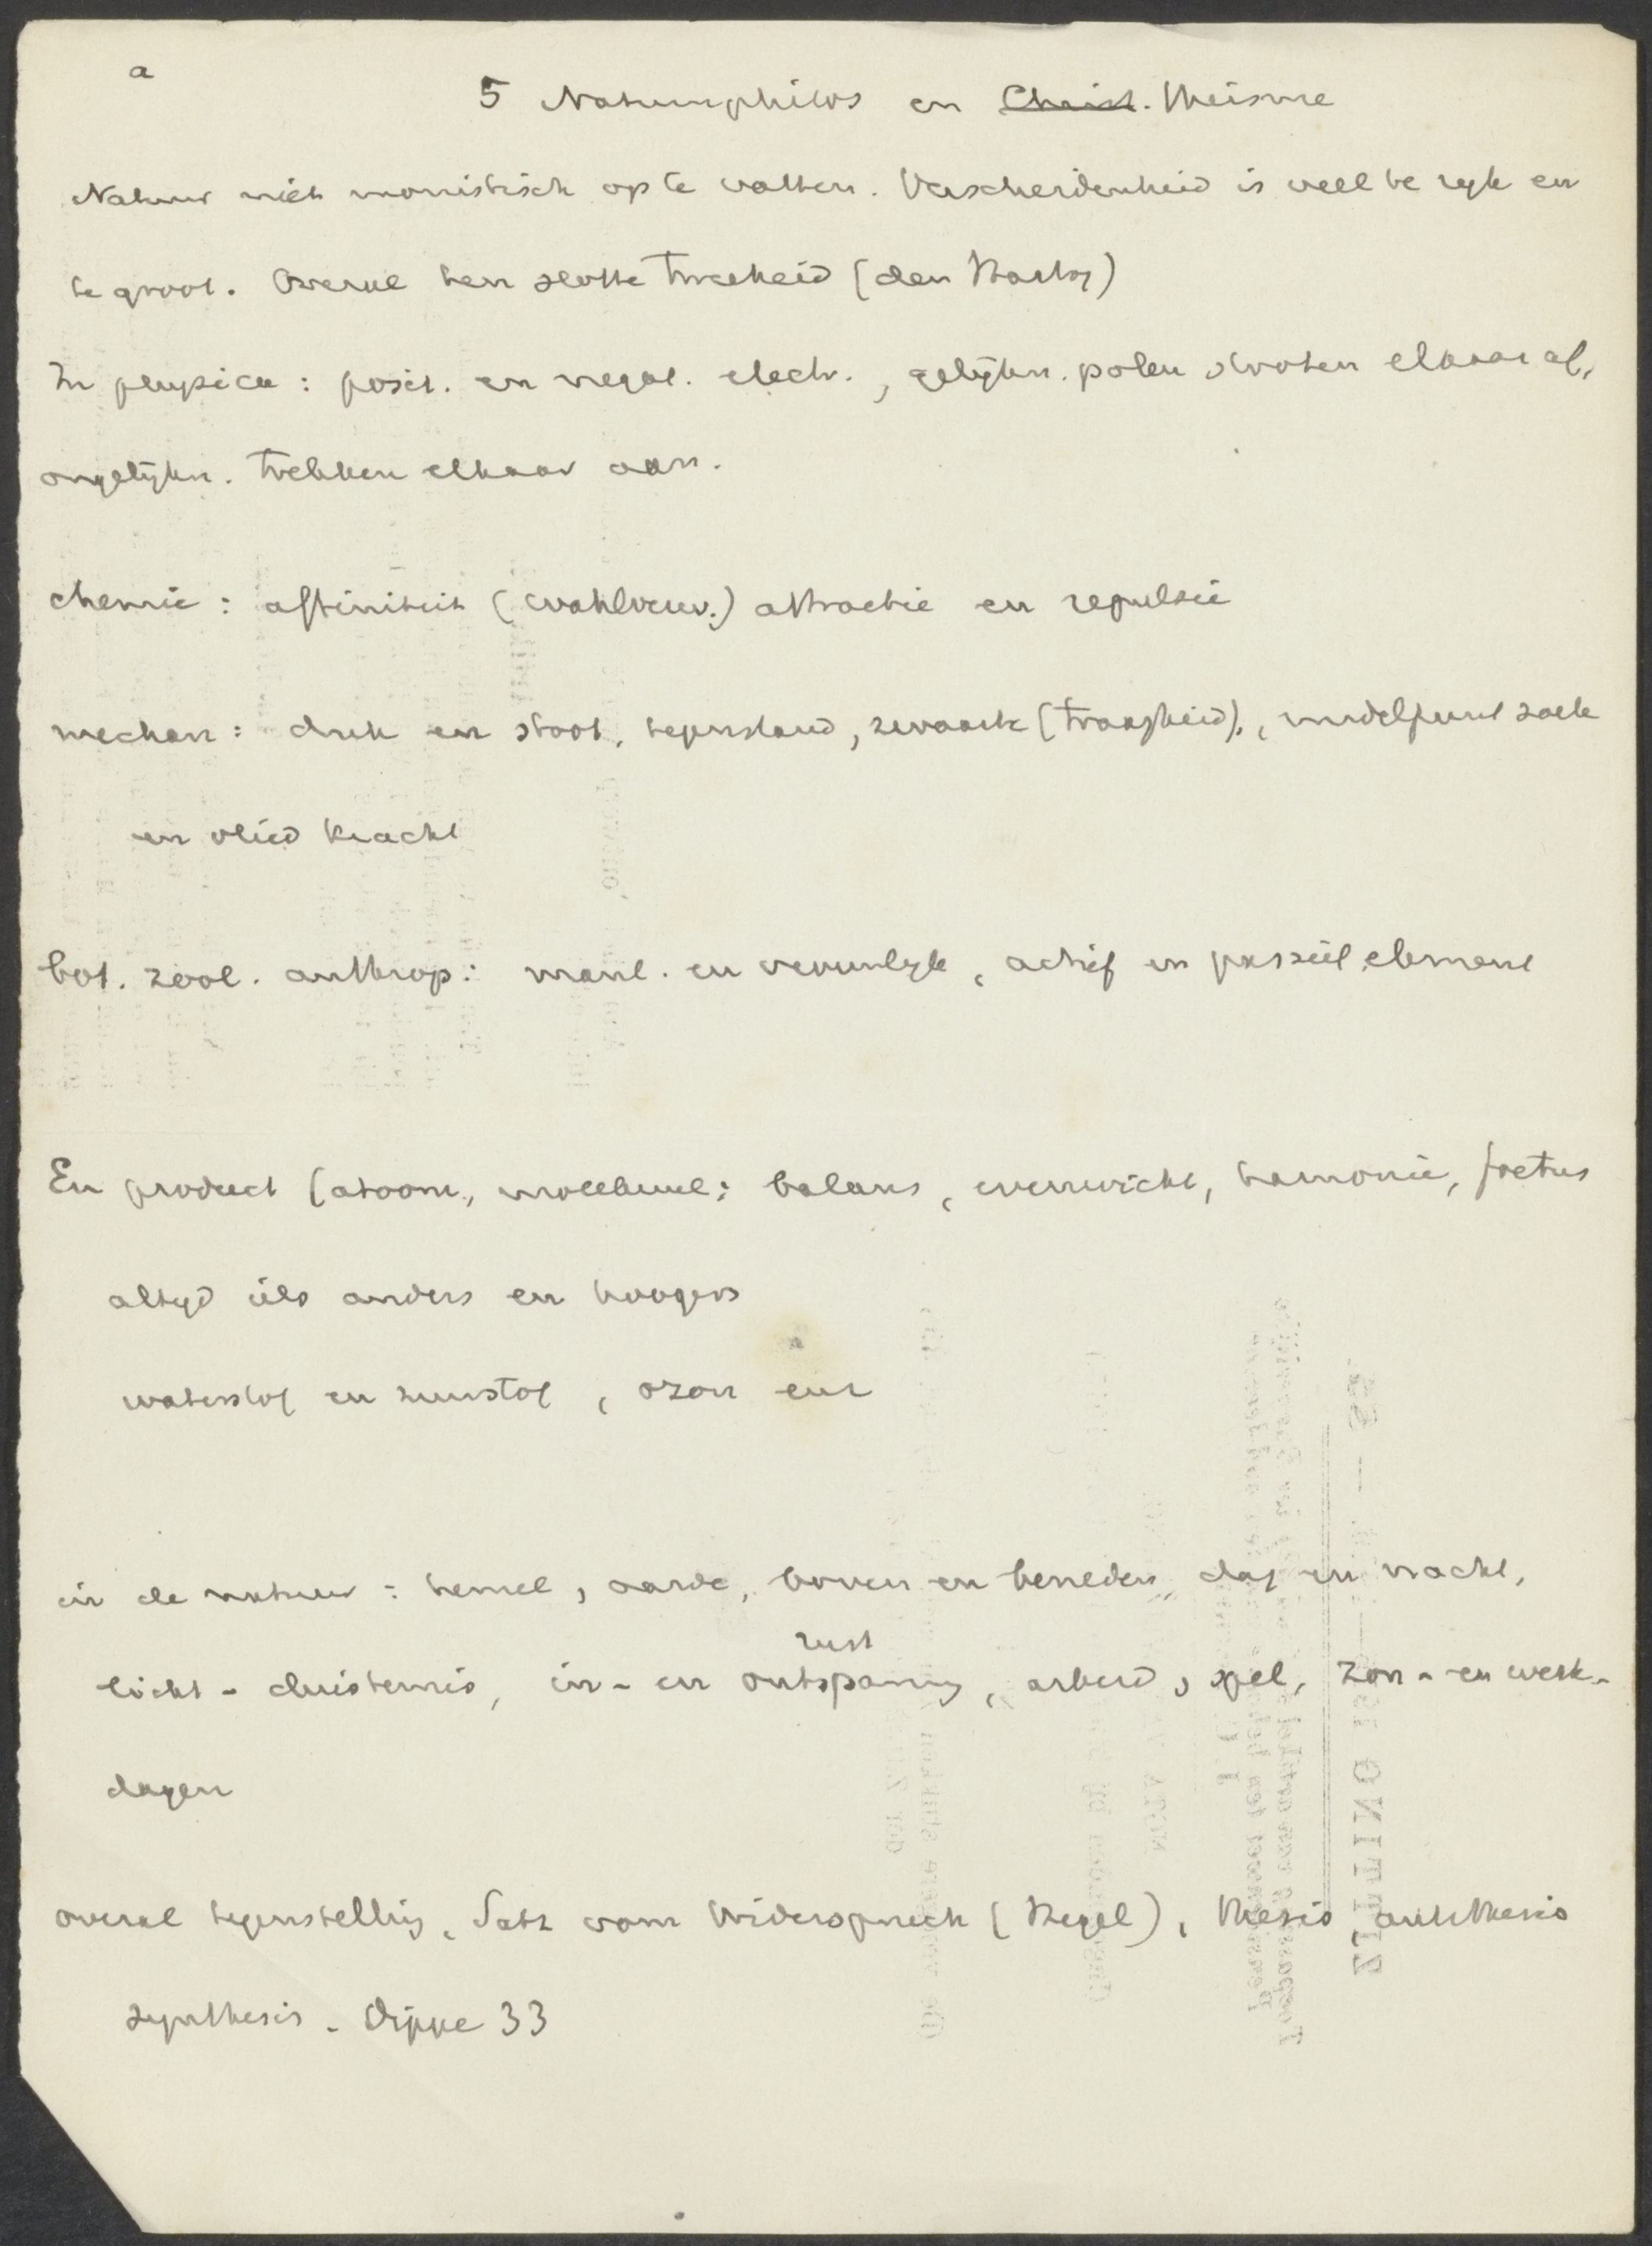 a
5 Natuurphilos en Christ. Theisme
Natuur niet monistisch op te vatten. Verscheidenheid is veel te ryk en
te groot. Overal ten slotte tweeheid (den Hartog)
In physica: posit. en negat. electr., gelijkn. polen stooten elkaar af,
ongelijkn. trekken elkaar aan.
chemie: affiniteit (wahlverw.) attractie en repulsie
mechan: druk en stoot, tegenstand, zwaarte (traagheid), middelpunt zoek
en vlied kracht
bot. zool. anthrop: manl. en vrouwlyk, actief en passief element
En product (atoom, molecuul: balans, evenwicht, harmonie, foetus
altyd iets anders en hoogers
waterstof en zuurstof, ozon enz
in de natuur: hemel, aarde, boven en beneden, dag en nacht,
rust
licht - duisternis, in- en ontspanng, arbeid, spel, zon- en werk-
dagen
overal tegenstelling, Satz vom Widerspruch (Hegel), thesis antithesis
synthesis - Dippe 33
ZITTING